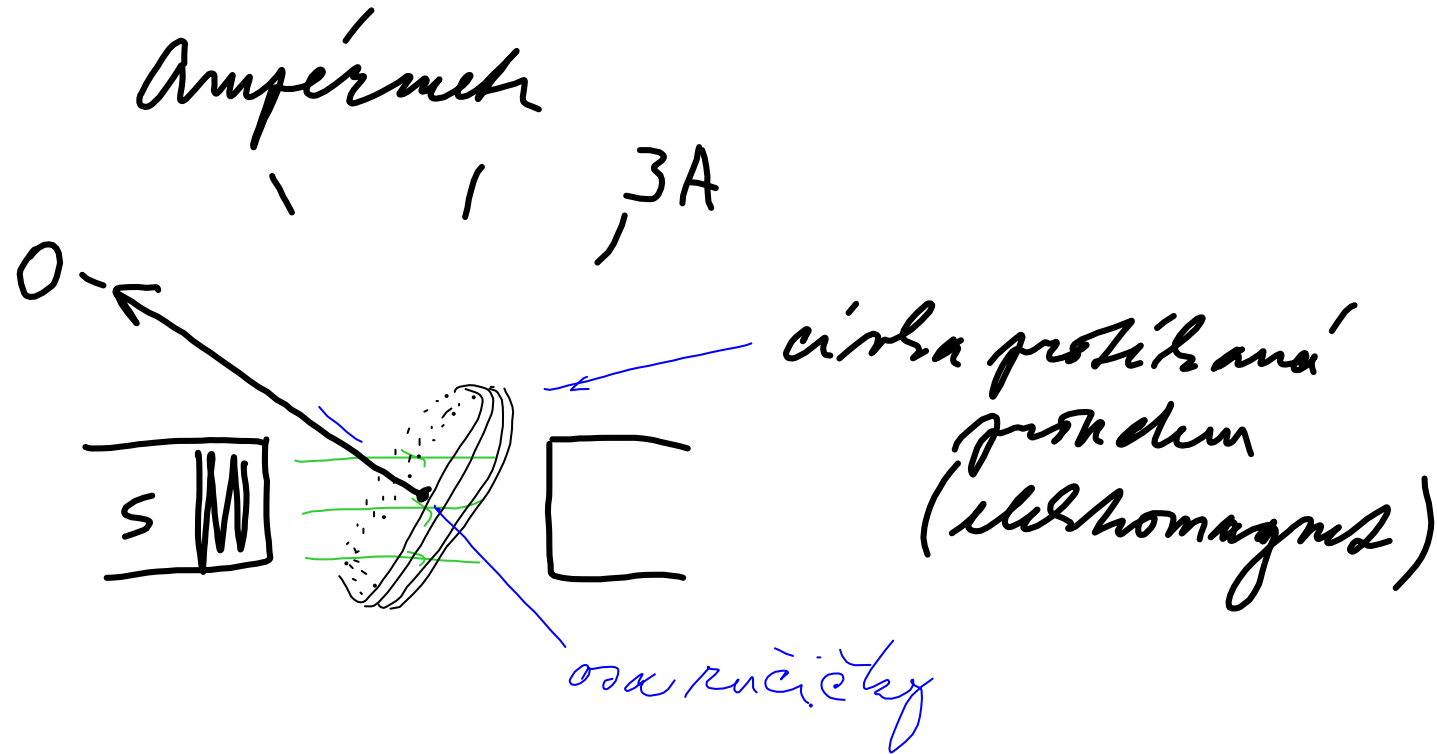 Ampérmetr
3A
0
cívka protékaná
proudem
(elektromagnet)
S
osa ručičky